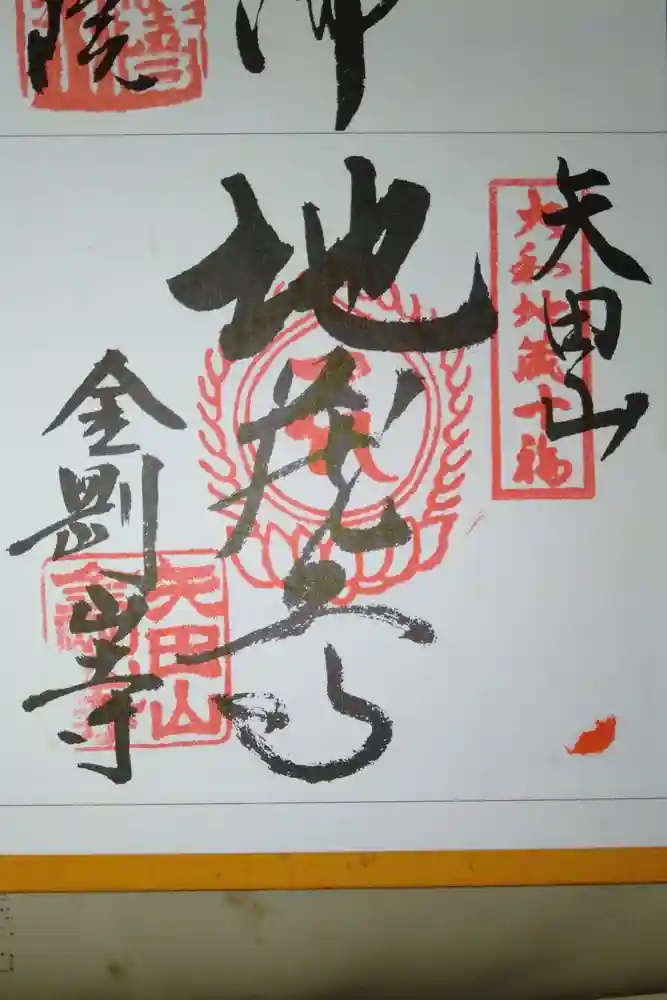 矢田山
大和地蔵十福
地蔵尊
金剛山寺
矢田山